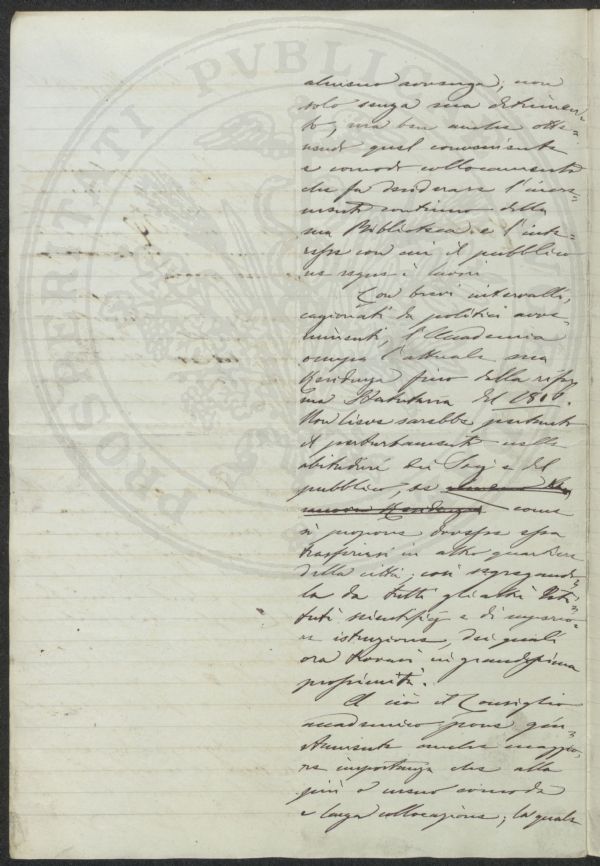 PROSPERITATI PVBLICAE
almeno senza, non
solo senza sua detrimen-
to, ma ben anche otte-
nendo quel conveniente
e comodo collocamento
che fa desiderare l'incre-
mento continuo della
sua Biblioteca e l'inte-
resse con cui il pubblico
ne segue i lavori
Con brevi intervalli,
cagionati da politici avve-
nimenti, l'Accademia
occupa l'attuale sua
Residenza fino dalla rifor-
ma Statutaria del
Non lieve sarebbe pertanto
il perturbamento nelle
abitudini dei Socj e del
pubblico, se come
si propone dovesse essa
trasferirsi in altro quartiere
della città, così segregando-
la da tutti gli altri Isti-
tuti scientifici e di superio-
re istruzione, dei quali
ora trovasi in grandissima
prossimità.
A ciò il Consiglio
accademico pone giu-
stamente anche maggio-
re importanza che alla
più o meno comoda
e larga collocazione, la quale